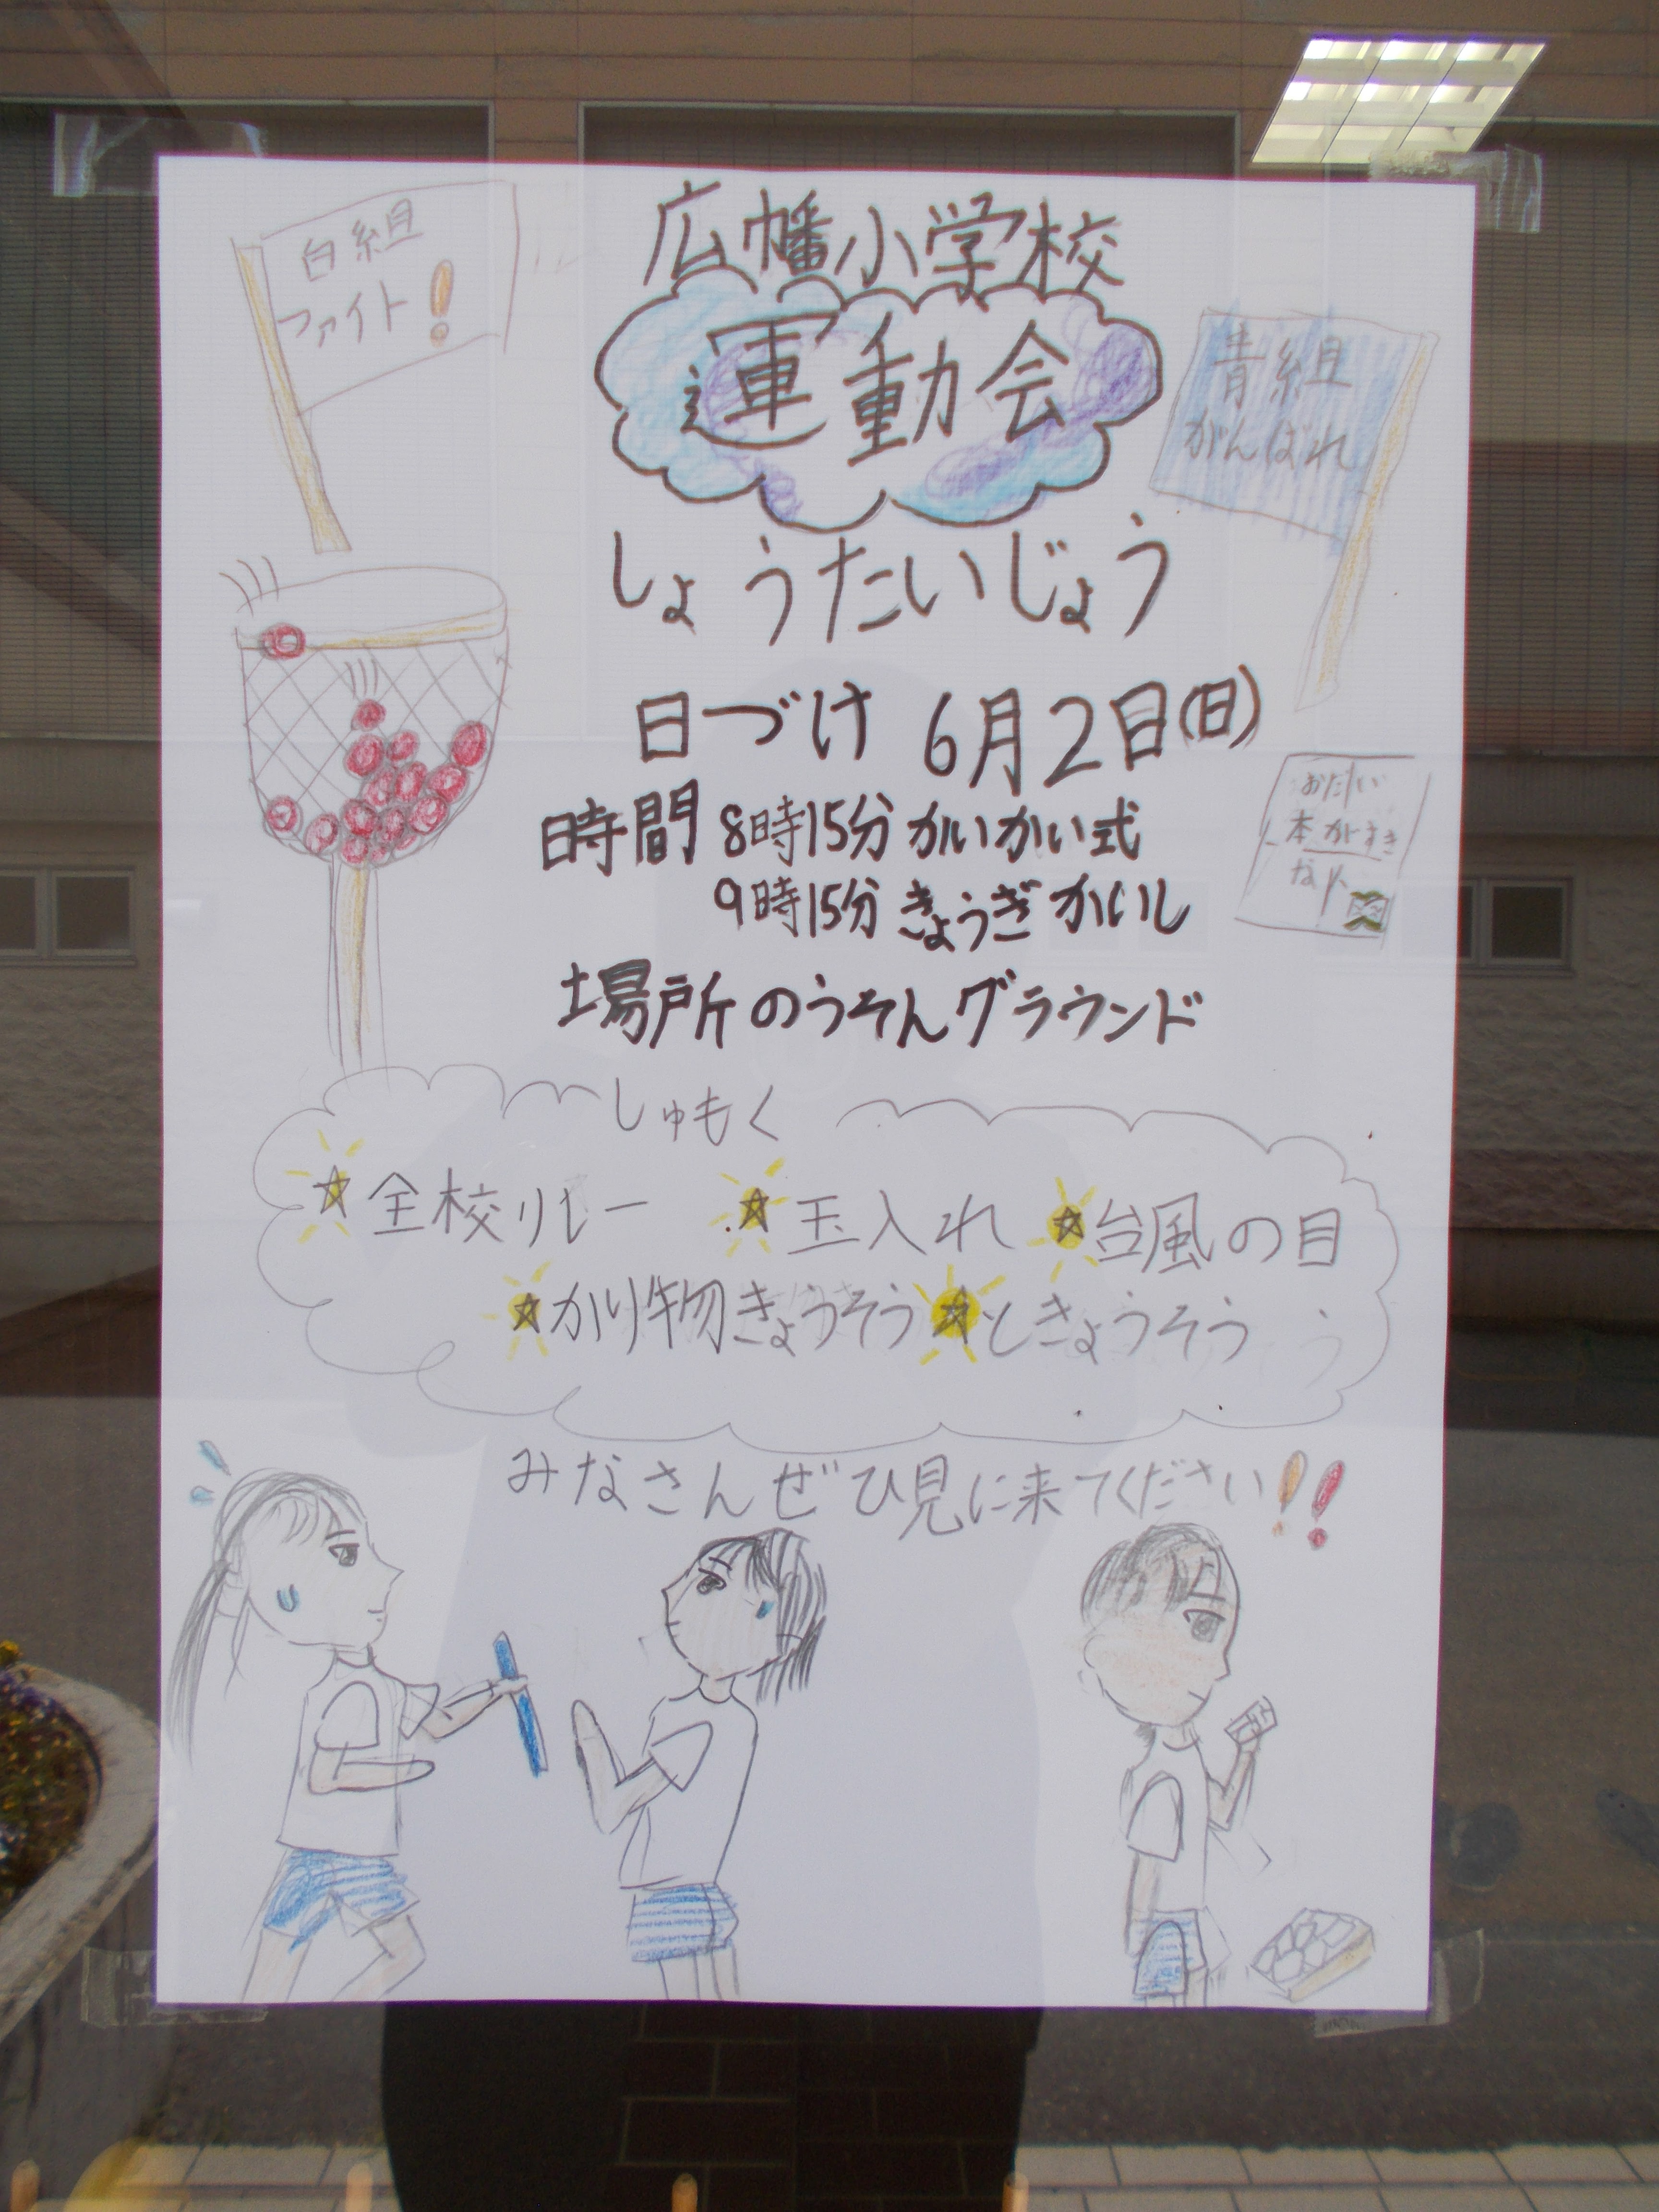 白組
ファイト!
広幡小学校
運動会
しょうたいじょう
青組
がんばれ
日づけ 6月2日(日)
時間 8時15分 かいかい式
9時15分 きょうぎかいし
場所 のうそんグラウンド
本がすき
な人
しゅもく
☆全校リレー ☆玉入れ ☆台風の目
☆かり物きょうそう ☆ときょうそう
みなさんぜひ見に来てください!!